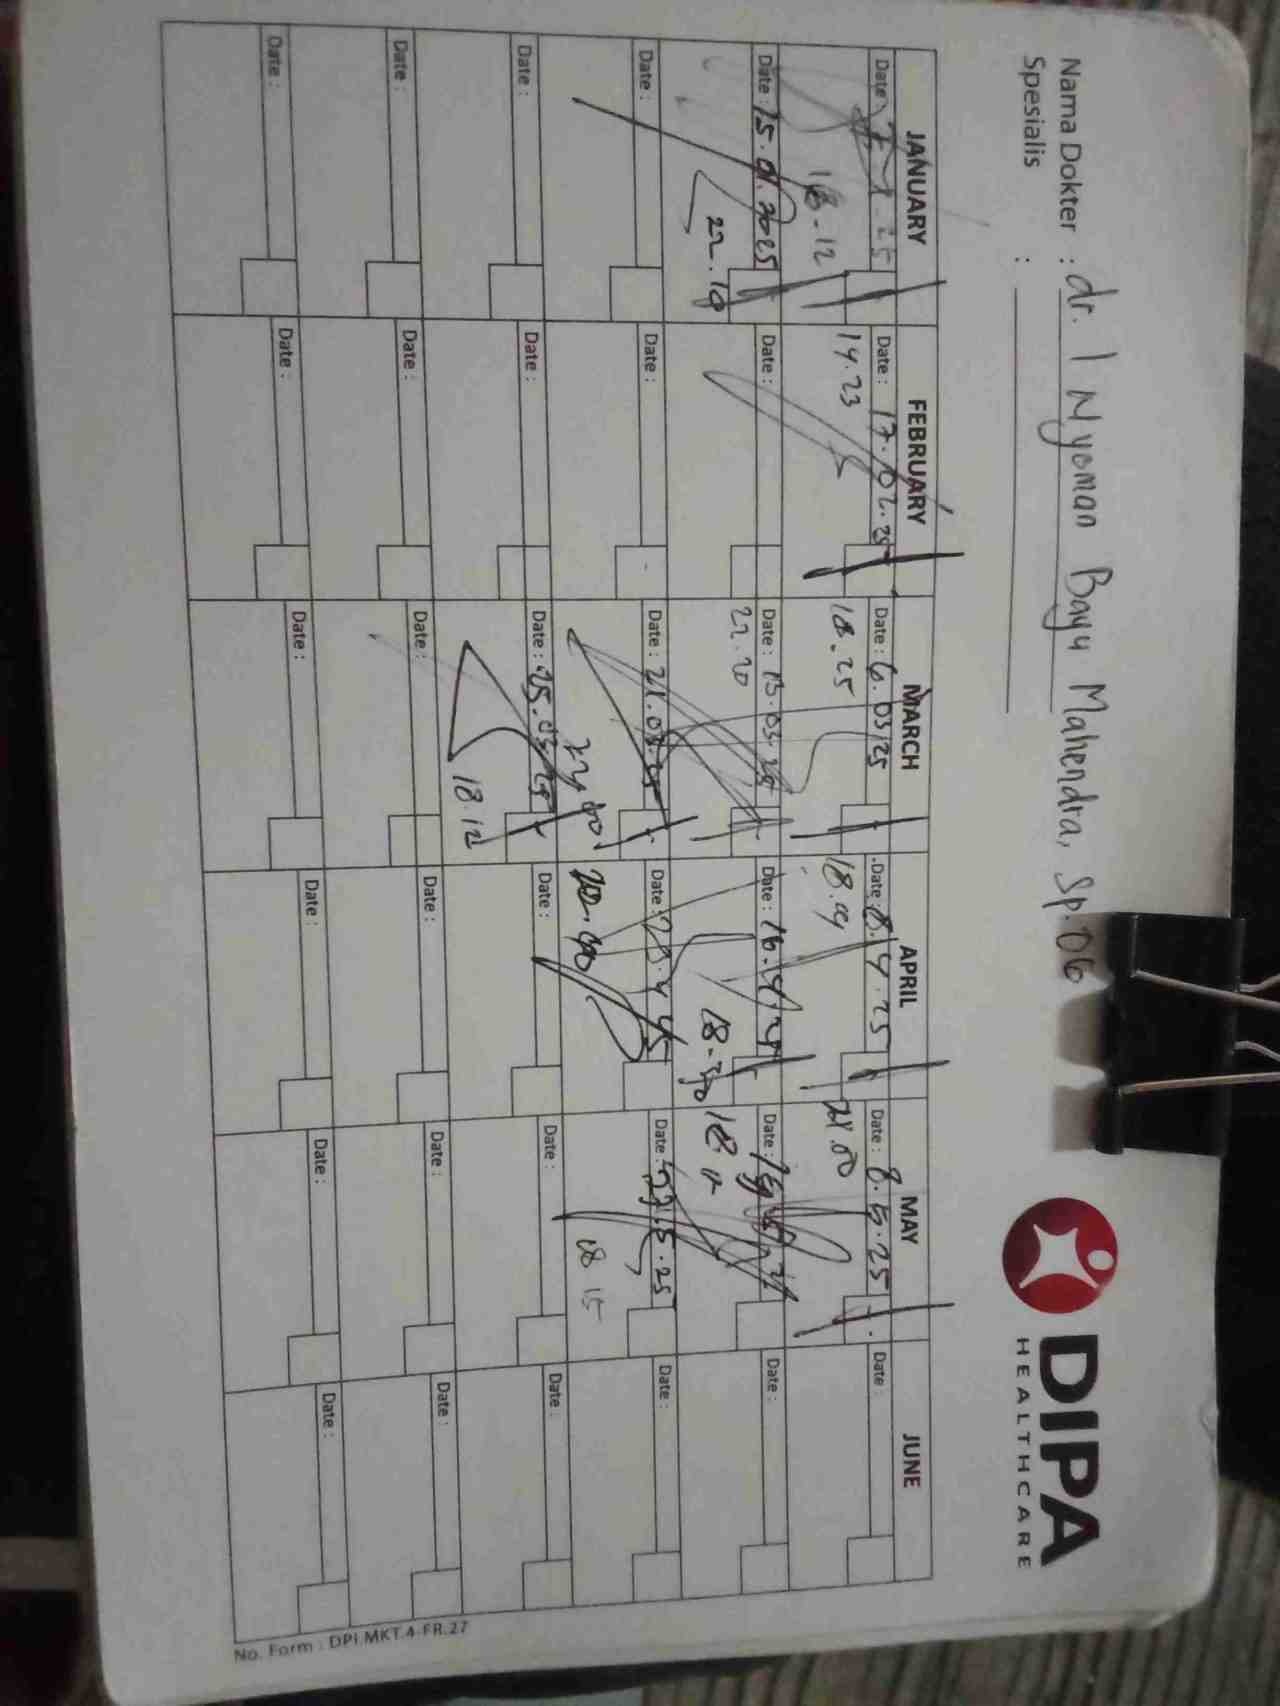 Nama Dokter : dr. I Nyoman Bayu Mahendra, Sp.OG
Spesialis :
DIPA
HEALTHCARE
JANUARY FEBRUARY MARCH APRIL MAY JUNE
Date: Date: 17.02.25 Date: 6.03.25 Date: 8.4.25 Date: 8.5.25 Date:
18-12 14.23 18.25 18.09
Date: 15.01.2025 Date: Date: 13.03.25 Date: 16.4.25 Date: Date:
22.10 22.20
Date: Date: Date: 21.03.25 Date: Date: 22.5.25 Date:
18 15
Date: Date: Date: 25.03.25 Date: Date: Date:
18.12
Date: Date: Date: Date: Date: Date:
Date: Date: Date: Date: Date: Date:
No. Form : DPI.MKT.4-FR.27